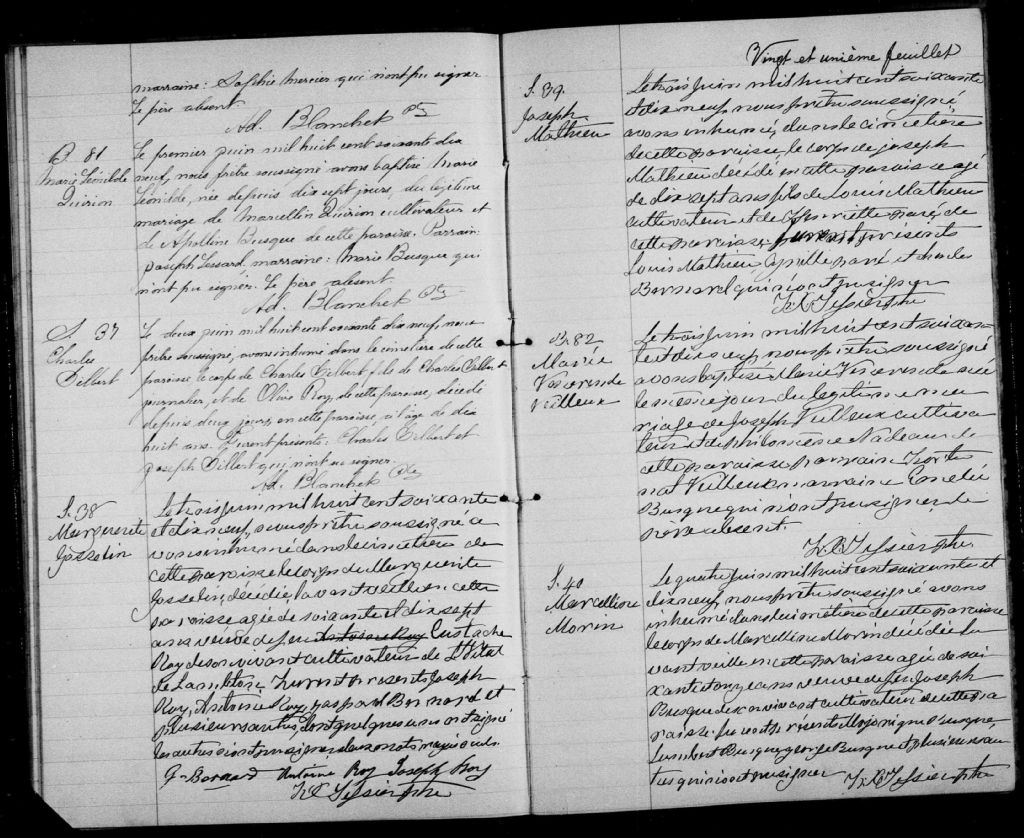 marraine: Sophie Mercier qui n'ont pu signer
Le père absent
Ad. Blanchet Ptr
B 81
Marie Léonilde
Quirion
Le premier juin mil huit cent soixante dix
neuf, nous prêtre soussigné avons baptisé Marie
Léonilde, née depuis dix sept jours, du légitime
mariage de Marcellin Quirion cultivateur et
de Apolline Busque de cette paroisse. Parrain:
Joseph Lessard marraine: Marie Busque qui
n'ont pu signer. Le père absent
Ad. Blanchet Ptr
S. 37
Charles
Gilbert
Le deux juin mil huit cent soixante dix neuf, nous
prêtre soussigné, avons inhumé dans le cimetière de cette
paroisse le corps de Charles Gilbert fils de Charles Gilbert
journalier, et de Olive Roy, de cette paroisse, décédé
depuis deux jours en cette paroisse, à l'âge de dix
huit ans. Furent présents: Charles Gilbert et
Joseph Gilbert qui n'ont su signer.
Ad. Blanchet Ptr
S. 38
Marguerite
Gosselin
Le trois juin mil huit cent soixante
et dix neuf, nous prêtre soussigné a
vons inhumé dans le cimetière de
cette paroisse le corps de Marguerite
Gosselin, décédée l'avant veille en cette
paroisse agée de soixante et dix sept
ans veuve de feu Antoine Roy Eustache
Roy de son vivant cultivateur de St Vital
de Lambton. Furent présents Joseph
Roy, Antoine Roy, Gaspard Bernard et
plusieurs autres dont quelques uns ont signé
les autres n'ont pu signer. deux mots rayés nuls.
G. Bernard Antoine Roy Joseph Roy
Vingt et unième feuillet
S. 39.
Joseph
Mathieu
Le trois juin mil huit cent soixante
et dix neuf, nous prêtre soussigné
avons inhumé, dans le cimetière
de cette paroisse, le corps de Joseph
Mathieu décédé en cette paroisse agé
de dix sept ans fils de Louis Mathieu
cultivateur et de Henriette Paré, de
cette paroisse. furent présents
Louis Mathieu, Paré et Charles
Bernard qui n'ont pu signer
B. 82
Marie
Veilleux
Le trois juin mil huit cent soixan
te et dix neuf, nous prêtre soussigné
avons baptisé Marie née
le même jour du légitime ma
riage de Joseph Veilleux cultiva
teur et de Philomène Nadeau de
cette paroisse parrain
Veilleux marraine
Busque qui n'ont pu signer le
père absent.
S. 40
Marcelline
Morin
Le quatre juin mil huit cent soixante et
dix neuf, nous prêtre soussigné avons
inhumé dans le cimetière de cette paroisse
le corps de Marcelline Morin décédée l'a
vant veille en cette paroisse agée de soi
xante et onze ans veuve de feu Joseph
Busque de son vivant cultivateur de cette pa
roisse. furent présents Busque
Lambert Busque George Busque et plusieurs au
tres qui n'ont pu signer